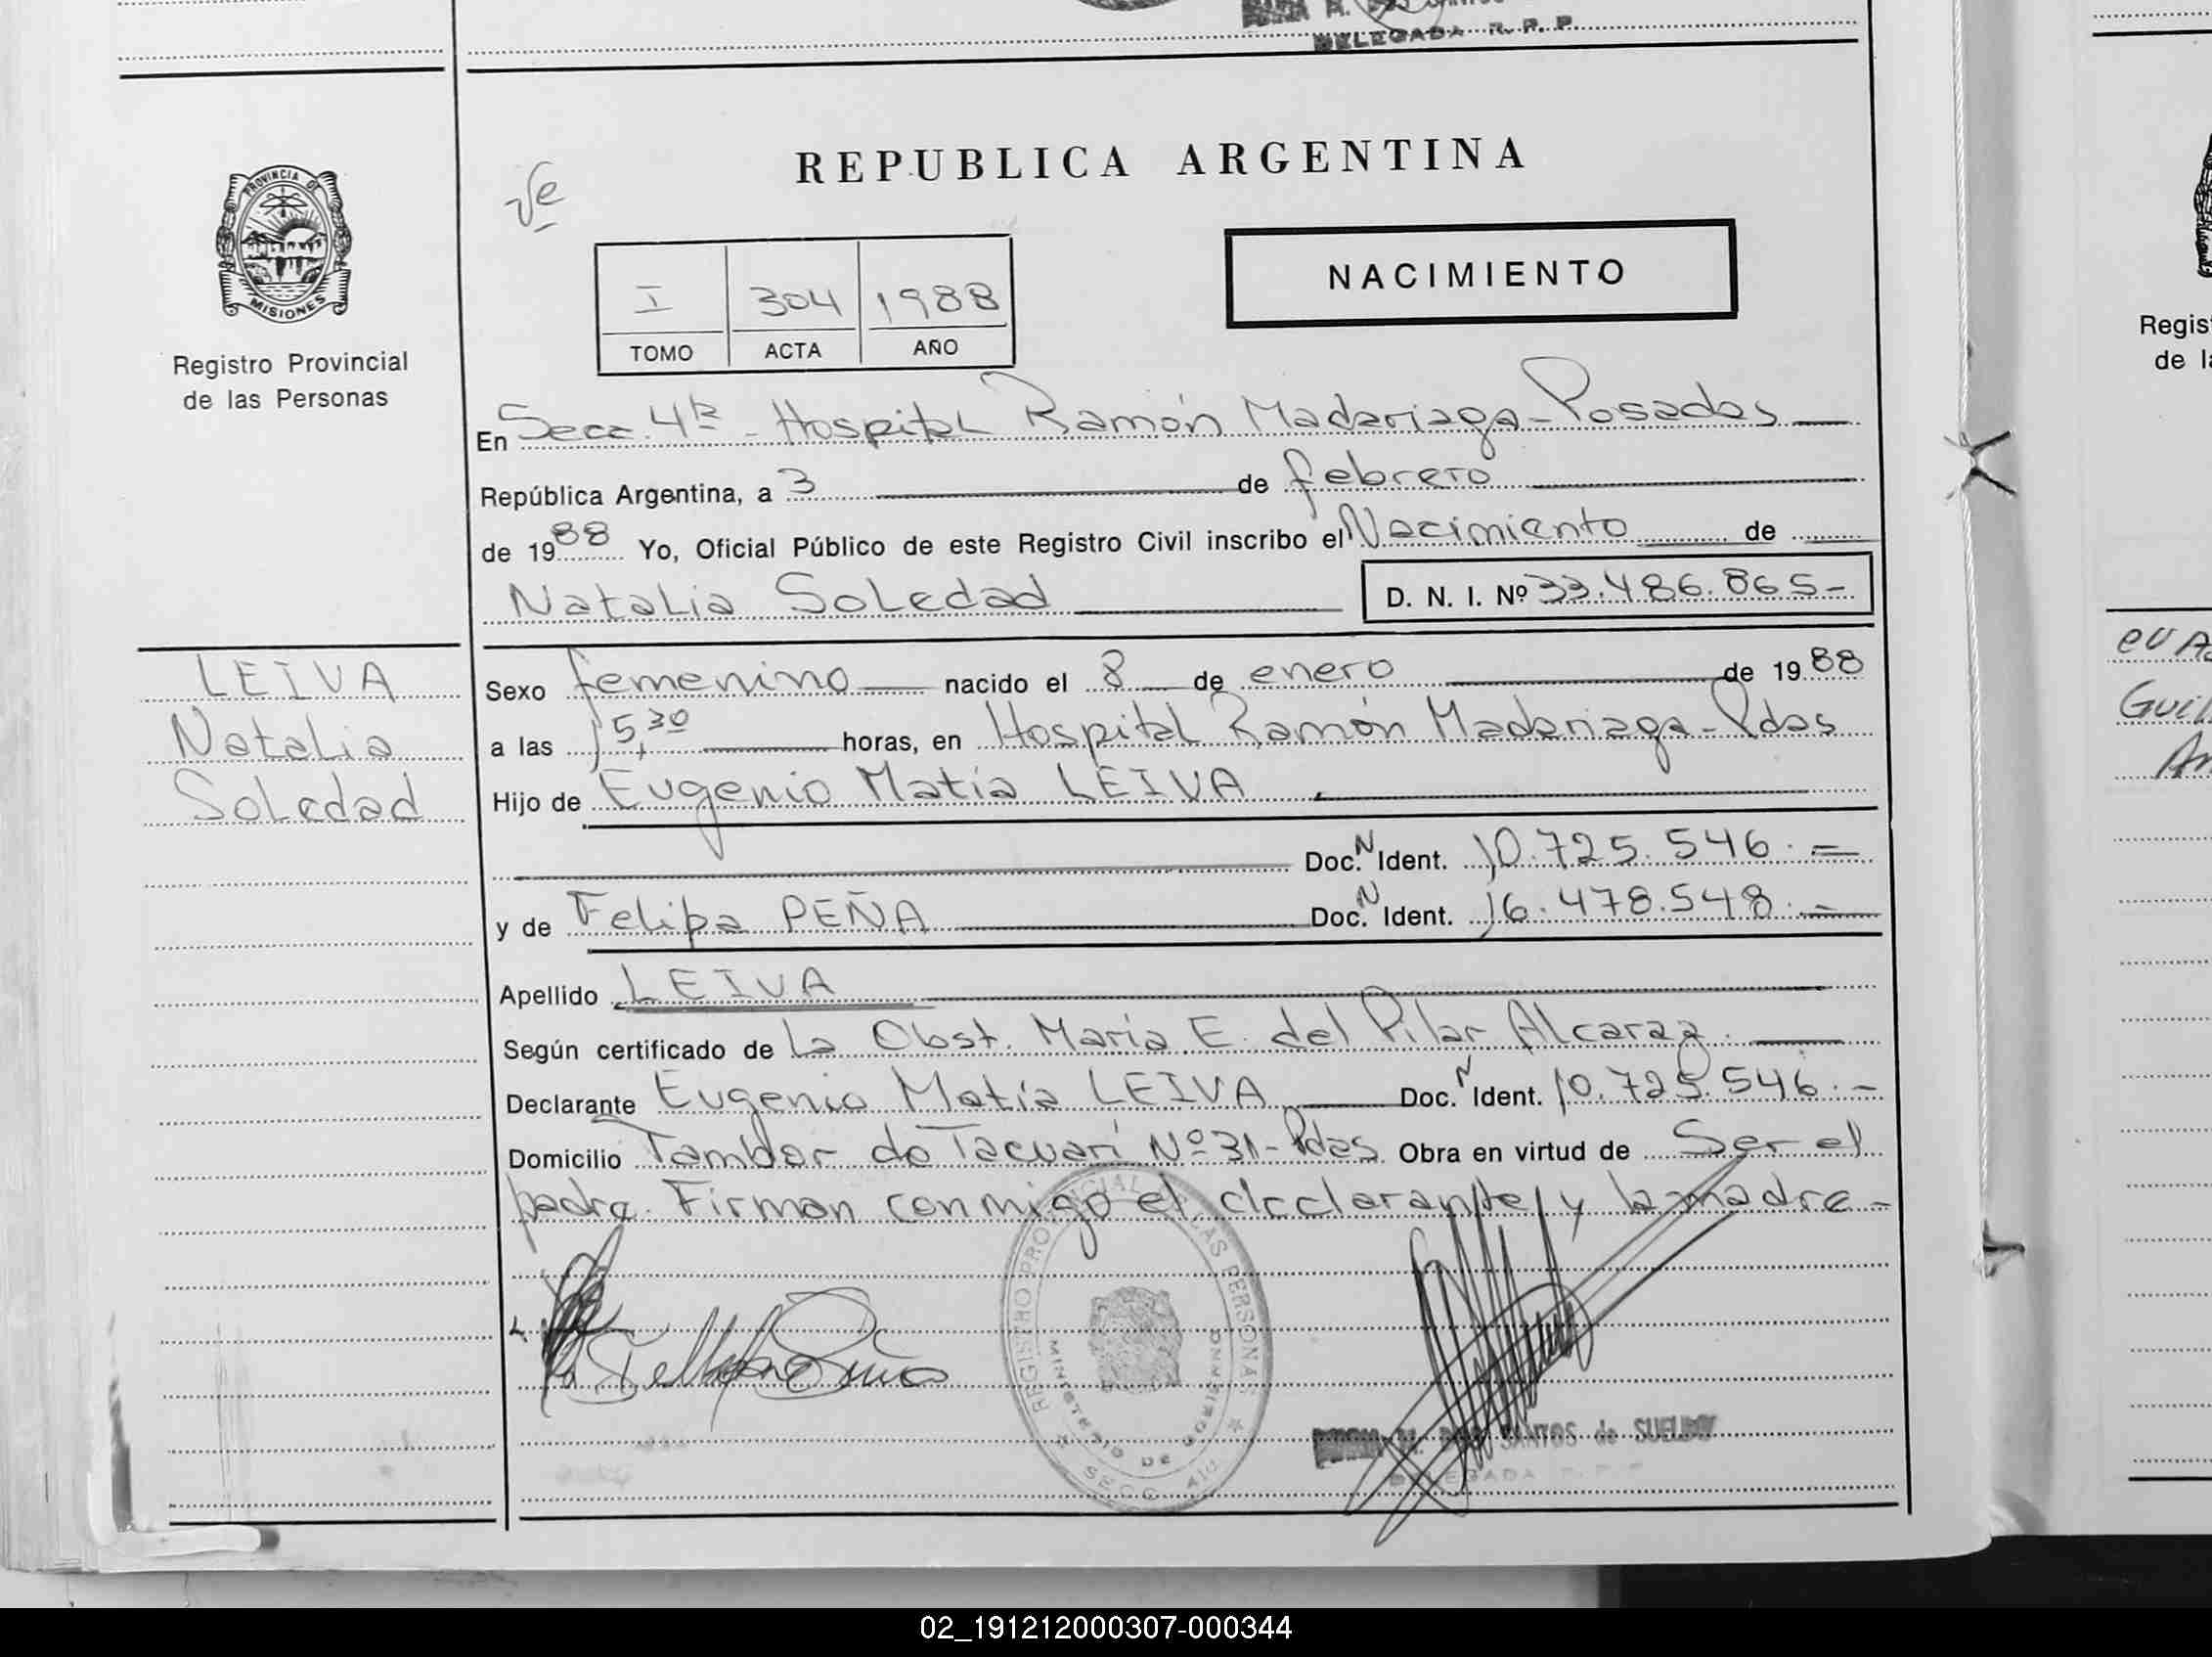 DELEGADA R. P. P.
PROVINCIA DE
MISIONES
Registro Provincial
de las Personas
REPUBLICA ARGENTINA
NACIMIENTO
I 304 1988
TOMO ACTA AÑO
En Secc. 4ta - Hospital Ramón Madariaga - Posadas
República Argentina, a 3 de febrero
de 1988 Yo, Oficial Público de este Registro Civil inscribo el Nacimiento de
Natalia Soledad D. N. I. Nº 33.486.865-
LEIVA
Natalia
Soledad
Sexo femenino nacido el 8 de enero de 1988
a las 15,30 horas, en Hospital Ramón Madariaga - Pdas
Hijo de Eugenio Matía LEIVA
Doc. N Ident. 10.725.546.-
y de Felipa PEÑA Doc. N Ident. 16.478.548.-
Apellido LEIVA
Según certificado de La Obst. María E. del Pilar Alcaraz.
Declarante Eugenio Matía LEIVA Doc. N Ident. 10.725.546.-
Domicilio Tambor de Tacuarí Nº 31 - Pdas Obra en virtud de Ser el
padre. Firman conmigo el declarante y la madre -
REGISTRO PROVINCIAL DE LAS PERSONAS
MINISTERIO DE GOBIERNO
SECC. 4ta
SANTOS de SUELDO
DELEGADA R. P. P.
Regis
de la
02_191212000307-000344